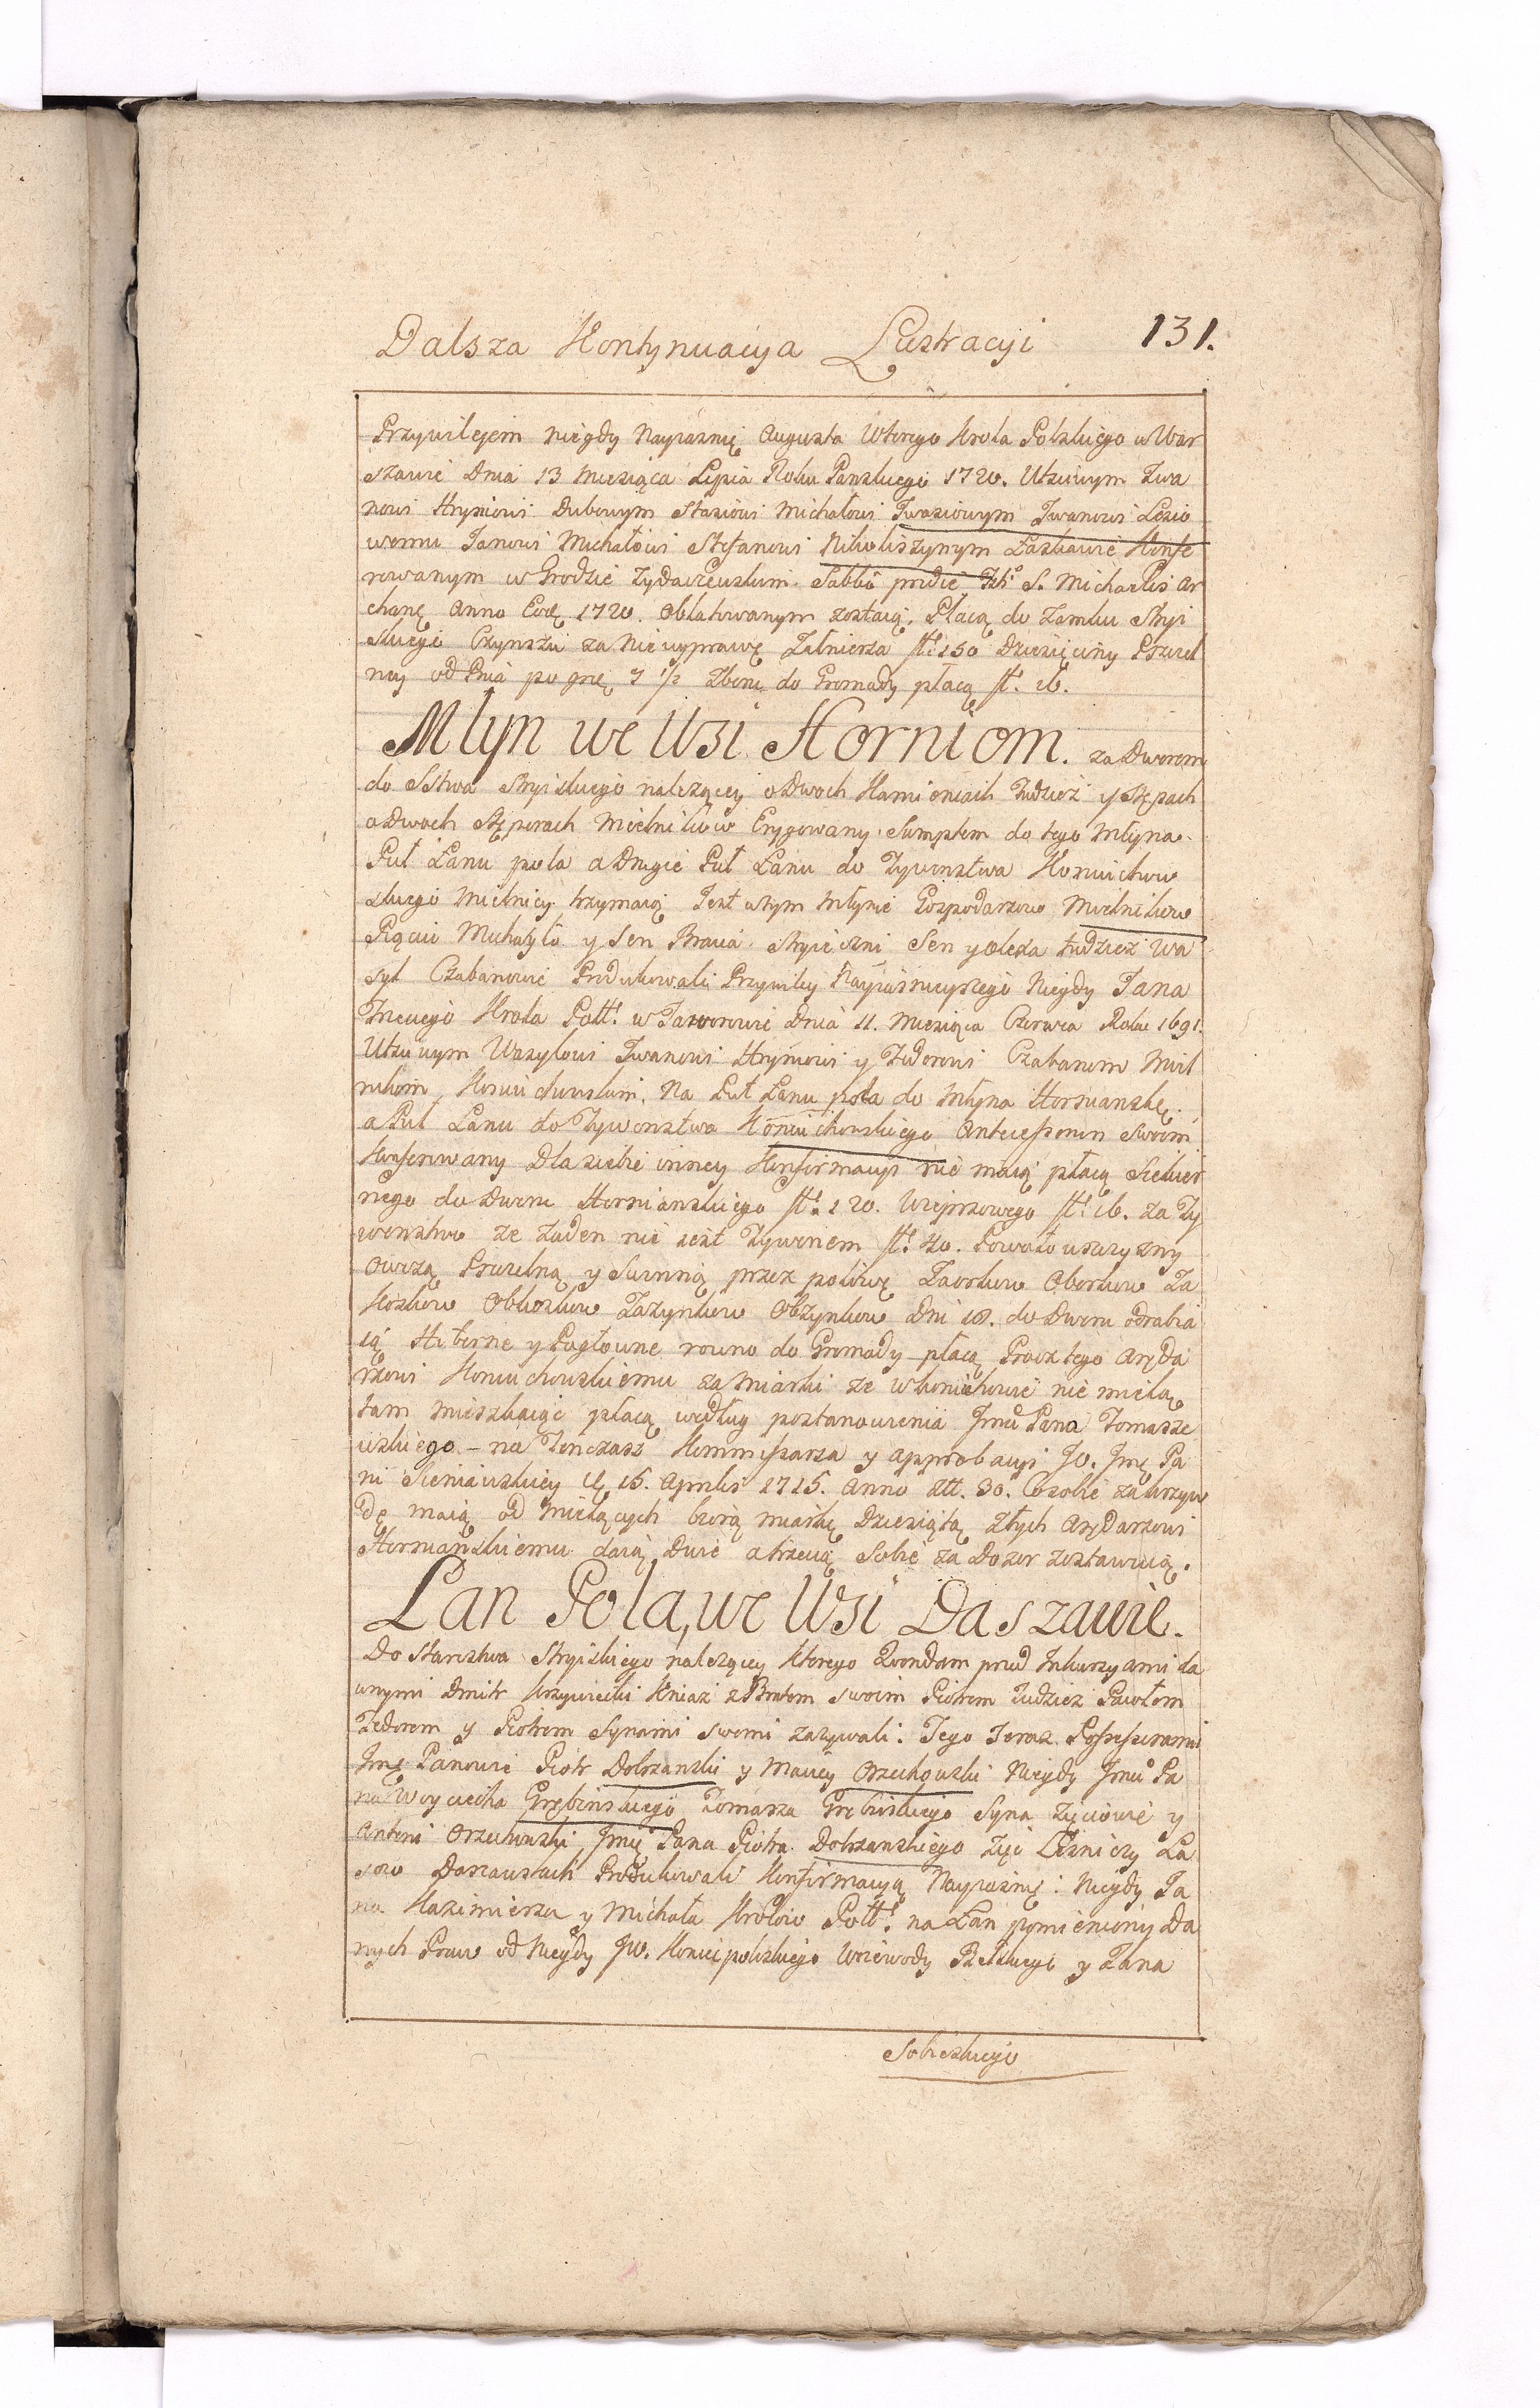 Dalsza Kontynuacya Lustracyi 131.
Przywilejem niegdy Nayiasnię Augusta Wtorego Krola Polskiego w War
szawie Dnia 13 Miesiąca Lipca Roku Panskiego 1720. Utzciwym Iwa
nowi Hryniowi Dubowym Stasiowi Michałowi Iwasiowym Iwanowi Lesio
wemu Janowi Michałowi Stefanowi Nikoliszynym Łaskawie Konfe
rowanym w Grodzie Zydaczewskim Sabbo pridie S. Michaelis Ar
chang Anno 1720. oblatowanym zostaią. Płacą do Zamku Stryi
skiego Czynszu za Nie wyprawę Żołnierza fł: 150 Dziesięciny Pszczel
ney od Pnia po gr 7 1/2 do Gromady płacą fł. 16.
Młyn we Wsi Horniom. za Dworem
do Sstwa Stryiskiego należącey o Dwoch Kamieniach Tudzież y Stępach
o Dwoch Stęporach Mielnikow Erygowany Sumptem do tego Młyna
Puł Łanu pola a Drugie Puł Łanu do Zywonstwa Koniuchow
skiego Mielnicy trzymaią Jest w tym Młynie Gospodarzow Mielnikow
Pięciu Michayło y Sen Bracia Sen y olexa tudzież Wa
syl Czabanowie Produkowali Przywiley Nayiasnieyszego Niegdy Jana
Trzeciego Krola Poll: w Jaworowie Dnia 11. Miesiąca Czerwca Roku 1691.
Utzciwym Wasylowi Iwanowi Hryniowi y Fedorowi Czabanom Miel
nikom Koniuchowskim. Na Puł Łanu pola do Młyna Horniansk
a Puł Łanu do Zywonstwa Koniuchowskiego Antecessorom Swoim
Konferowany Dla siebie inney Konfirmacyi nie maią płacą
nego do Dworu Hornianskiego fł: 120. Wieprzowego fł: 16. za Zy
wonstwo ze żaden nie iest Zywonem fł: 40. Powołowszczyzny
Owczą Pszczelną y Swinnią przez połowę Zaorkow Oborkow Za
koskow Obkoskow Zażynkow Obżynkow Dni 18. do Dworu odrabia
ią Hiberne y Pogłowne rowno do Gromady płacą Procz tego Aręda
rzowi Koniuchowskiemu za Miarki ze w koniuchowie nie mielą
tam Mieszkaiąc płacą według postanowienia Jmci Pana Tomasze
wskiego na Tenczas Kommissarza y approbacyi Jo. Jmę Pa
ni Sieniawskiey 15. Aprilis 1715. Anno 30. Osobie za krzyw
dę maią od mielących biorą miarkę Dziesiątą z tych Arędarzowi
Hornianskiemu daią Dwie a trzecią Sobie za Dozor zostawuią.
Łan Pola, we Wsi Daszawie.
Do Starostwa Stryiskiego należącey Ktorego Quondam przed Inkursyami da
wnymi Dmitr Krzywiecki Kniaz z Bratem swoim Piotrem Tudzież Pawłem
Fedorem y Piotrem Synami swemi zażywali: Tego Teraz Possessorami
Jmę Panowie Piotr Dobrzanski y Maciey Orzechowski Niegdy Jmci Pa
na Woyciecha Grębinskiego Tomasza Grębinskiego Syna Zięciowie y
Antoni Orzechowski Jmci Pana Piotra Dobrzanskiego Zięć Leśniczy La
sow Daszawskich Produkowali Konfirmacyą Nayiasnię: Niegdy Ja
na Kazimierza y Michała Krolow Poll: na Łan pomieniony Da
nych Praw od Niegdy Jw. Koniecpolskiego Woiewody Bełzkiego y Jana
Sobieskiego